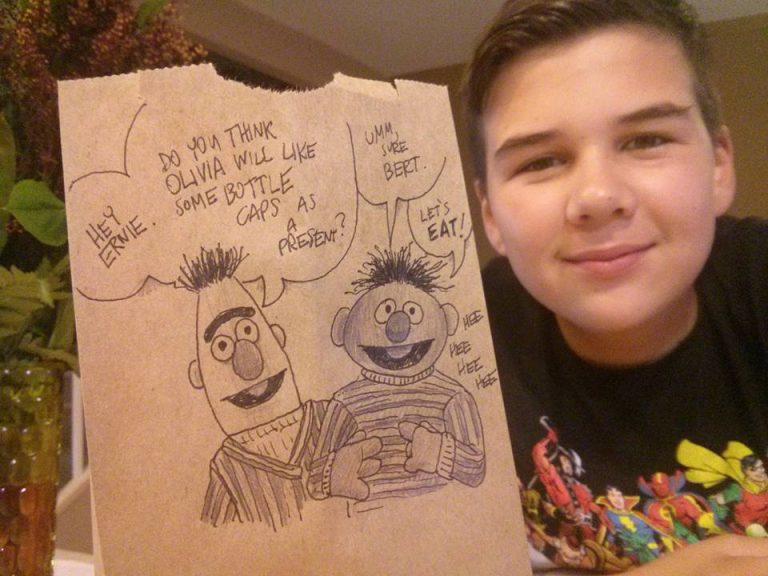 HEY
ERNIE.
DO YOU THINK
OLIVIA WILL LIKE
SOME BOTTLE
CAPS AS
A
PRESENT?
UMM,
SURE
BERT.
LET'S
EAT!
HEE
HEE
HEE
HEE